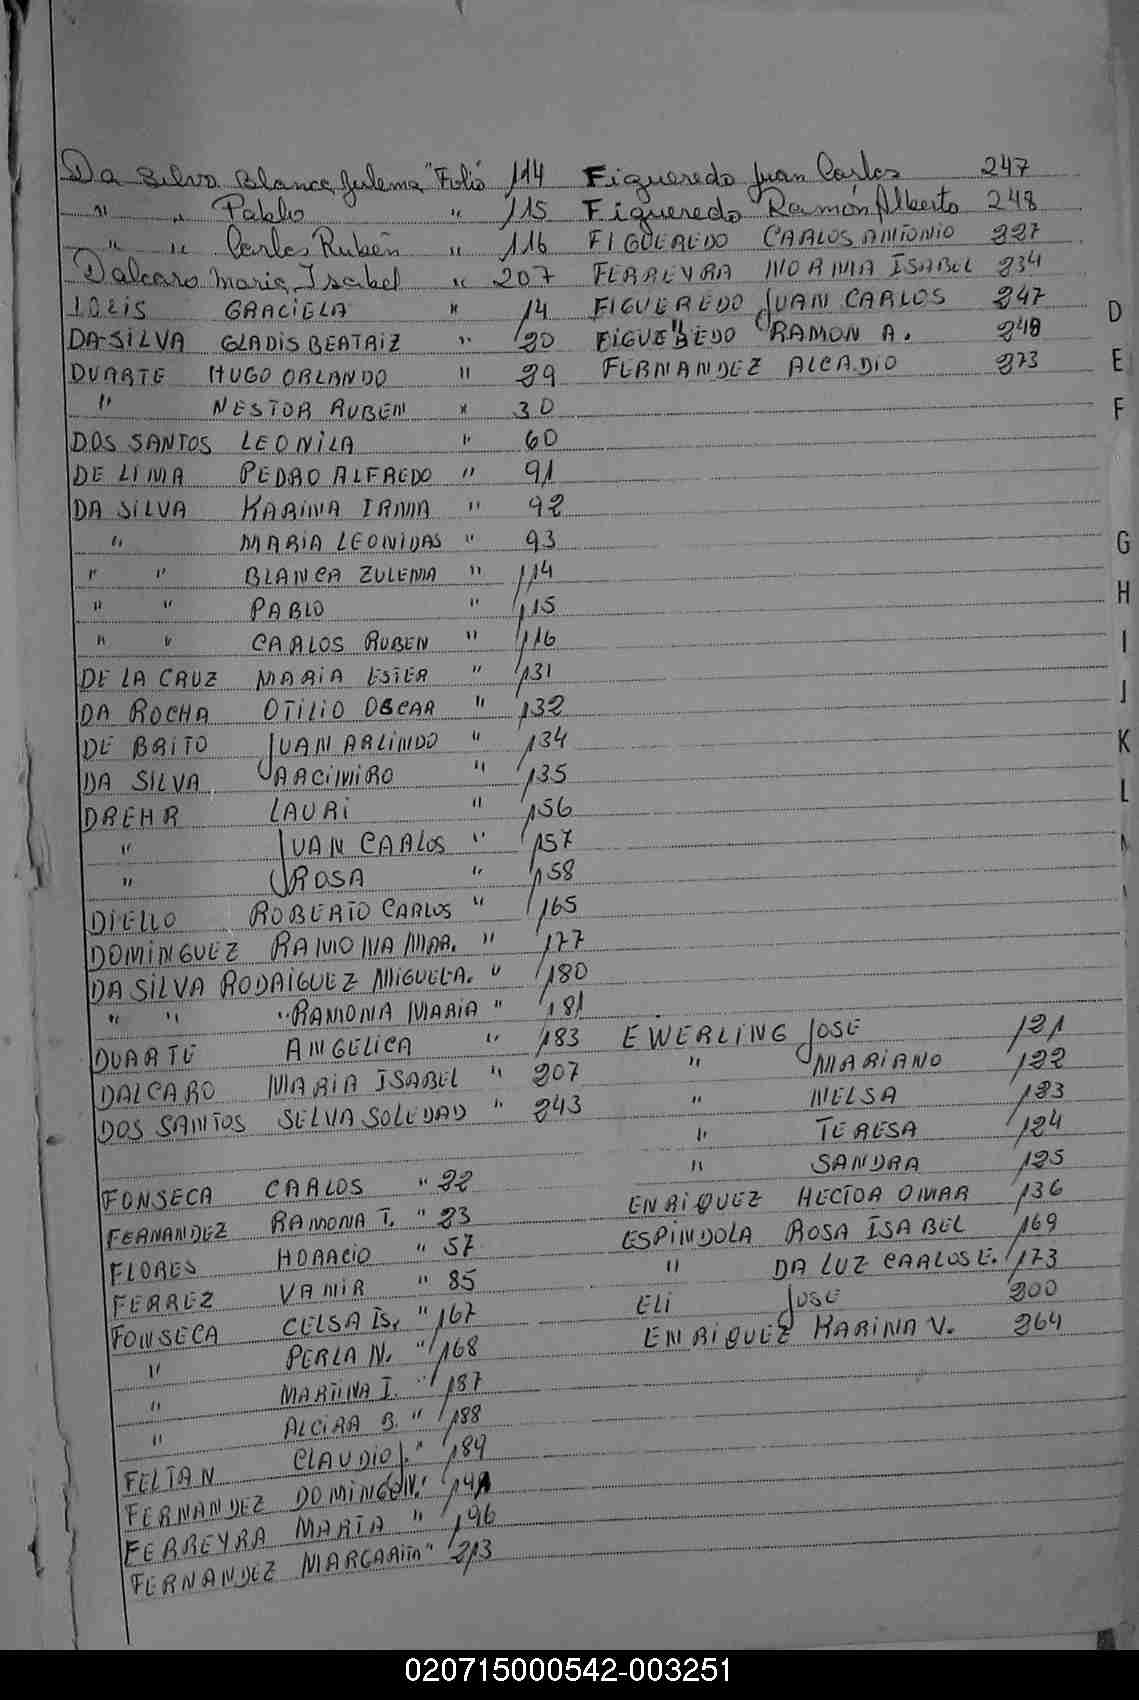 Da Silva Blanca Julema " Folio 114
" " Pablo " 115
" " Carlos Rubén " 116
Dalcaro Maria Isabel " 207
GRACIELA " 14
DA-SILVA GLADIS BEATRIZ " 20
DUARTE HUGO ORLANDO " 29
" NESTOR RUBEN " 30
DOS SANTOS LEONILA " 60
DE LIMA PEDRO ALFREDO " 91
DA SILVA KARINA IRMA " 92
" MARIA LEONIDAS " 93
" " BLANCA ZULEMA " 114
" " PABLO " 115
" " CARLOS RUBEN " 116
DE LA CRUZ MARIA ESTER " 131
DA ROCHA OTILIO OSCAR " 132
DE BRITO JUAN ARLINDO " 134
DA SILVA ARCIMIRO " 135
DREHR LAURI " 156
" JUAN CARLOS " 157
" ROSA " 158
DIELLO ROBERTO CARLOS " 165
DOMINGUEZ RAMONA MAR. " 177
DA SILVA RODRIGUEZ MIGUEL A. " 180
" " " RAMONA MARIA " 181
DUARTE ANGELICA " 183
DALCARO MARIA ISABEL " 207
DOS SANTOS SELVA SOLEDAD " 243
FONSECA CARLOS " 22
FERNANDEZ RAMONA I. " 23
FLORES HORACIO " 57
FERREZ VAMIR " 85
FONSECA CELSA IS. " 167
" PERLA N. " 168
" MARTINA I. " 187
" ALCIRA B. " 188
FELTAN CLAUDIO J. " 189
FERNANDEZ DOMINGO N. "
FERREYRA MARTA " 196
FERNANDEZ MARGARITA " 213
Figueredo Juan Carlos 247
Figueredo Ramón Alberto 248
FIGUEREDO CARLOS ANTONIO 227
FERREYRA NORMA ISABEL 234
FIGUEREDO JUAN CARLOS 247
FIGUEREDO RAMON A. 248
FERNANDEZ ALCADIO 273
EWERLING JOSE 121
" MARIANO 122
" NELSA 123
" TERESA 124
" SANDRA 125
ENRIQUEZ HECTOR OMAR 136
ESPINDOLA ROSA ISABEL 169
" DA LUZ CARLOS E. 173
ELI JOSE 200
ENRIQUEZ KARINA V. 264
D
E
F
G
H
I
J
K
L
020715000542-003251